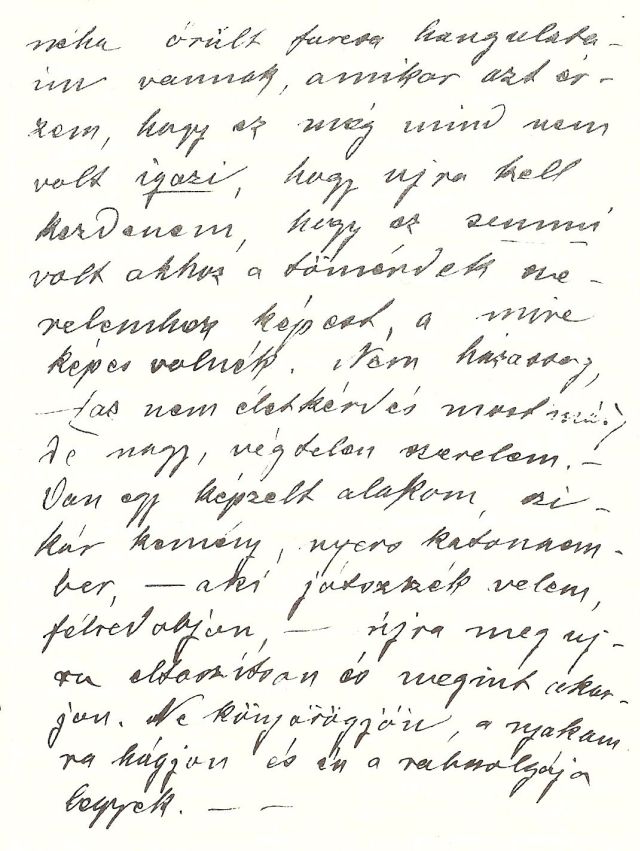 néha őrült furcsa hangulata-
im vannak, amikor azt ér-
zem, hogy ez még mind nem
volt igazi, hogy ujra kell
kezdenem, hogy ez semmi
volt ahhoz a töméntelen sze-
relemhez képest, a mire
képes volnék. Nem házasság,
— (az nem életkérdés most már)
de nagy, végtelen szerelem. —
Van egy képzelt alakom, szi-
kár kemény, nyers katonaem-
ber, — aki játszszék velem,
félredobjon, — újra meg uj-
ra eltaszítson és megint akar-
jon. Ne könyörögjön, a nyakam-
ra hágjon és én a rabszolgája
legyek. — —